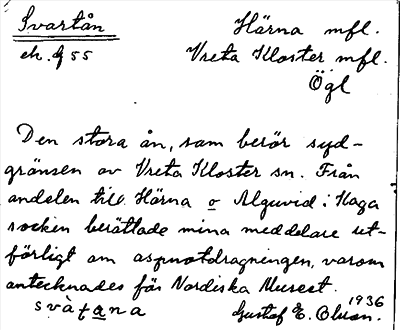 Svartån Härna mfl.
ek. f 55 Vreta Kloster mfl.
Ögl
Den stora ån, som berör syd-
gränsen av Vreta Kloster sn. Från
andelen till Härna o Alguvid i Kaga
socken berättade mina meddelare ut-
förligt om aspnotdragningen, varom
antecknades för Nordiska Museet.
svàṭana Gustaf E. Olsson. 1936